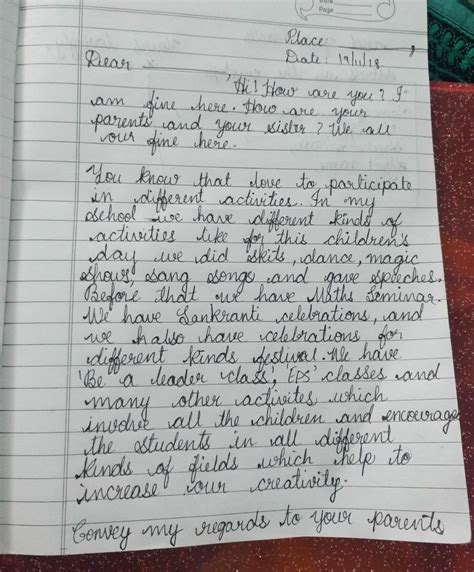 Page
Place:
Date: 17/11/18
Dear
'Hi! How are you? I
am fine here. How are your
parents and your sister? We all
our fine here.
You know that love to participate
in different activities. In my
school we have different kinds of
activities like for this children's
day we did skits, dance, magic
shows, sang songs and gave speeches.
Before that we have Maths Seminar.
We have Sankranti celebrations, and
we halso have celebrations for
different kinds festival. We have
'Be a leader class', 'EPS' classes and
many other activites which
involve all the children and encourage
the students in all different
kinds of fields which help to
increase our creativity.
Convey my regards to your parents